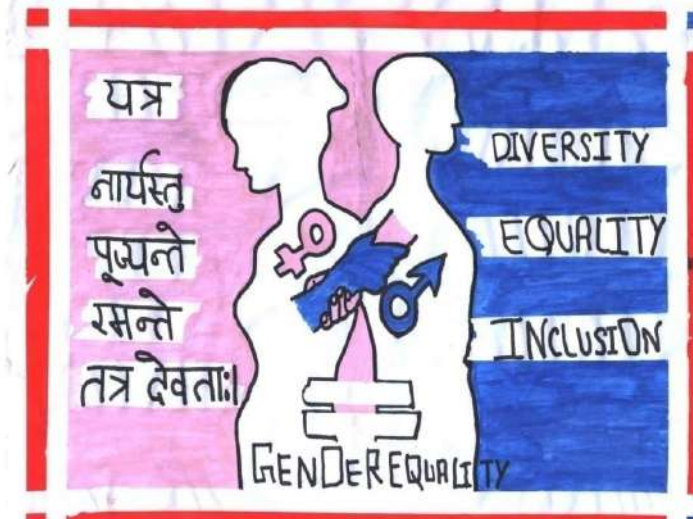 यत्र
नार्यस्तु
पूज्यन्ते
रमन्ते
तत्र देवताः।
DIVERSITY
EQUALITY
INCLUSION
GENDER EQUALITY